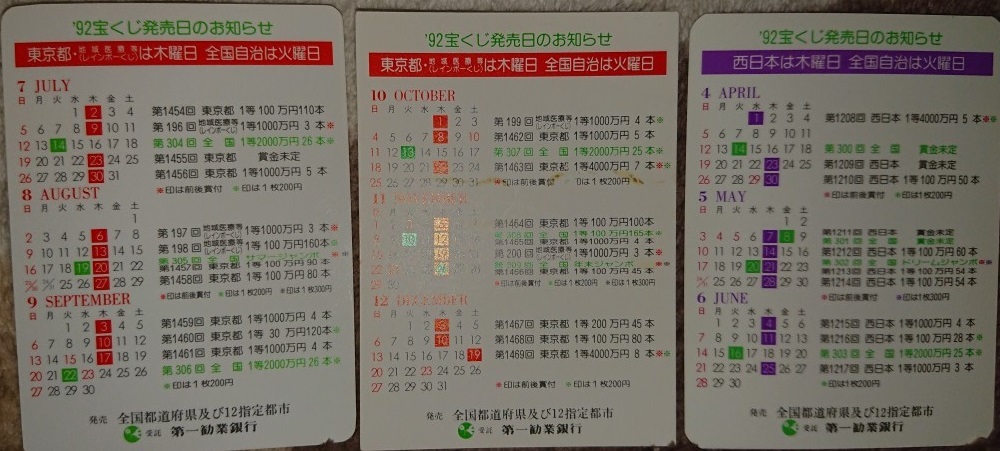 '92宝くじ発売日のお知らせ
東京都・地域医療等(レインボーくじ)は木曜日 全国自治は火曜日
7 JULY
日 月 火 水 木 金 土
1 2 3 4
第1454回 東京都 1等 100万円110本
5 6 7 8 9 10 11
第 196回 地域医療等(レインボーくじ) 1等1000万円 3 本※
12 13 14 15 16 17 18
第 304回 全 国 1等2000万円 26 本※
19 20 21 22 23 24 25
第1455回 東京都 賞金未定
26 27 28 29 30 31
第1456回 東京都 1等1000万円 5 本
※印は前後賞付 ※印は1枚200円
8 AUGUST
日 月 火 水 木 金 土
1
2 3 4 5 6 7 8
第 197回 地域医療等(レインボーくじ) 1等1000万円 3 本※
9 10 11 12 13 14 15
第 198回 地域医療等(レインボーくじ) 1等 100万円160本
16 17 18 19 20 21 22
第 305回 全 国 サマージャンボ
第1457回 東京都 1等 100万円 90 本
第1458回 東京都 1等 100万円 80 本
25 26 27 28 29
※印は前後賞付 ※印は1枚200円 ※印は1枚300円
9 SEPTEMBER
日 月 火 水 木 金 土
1 2 3 4 5
第1459回 東京都 1等1000万円 4 本
6 7 8 9 10 11 12
第1460回 東京都 1等 30 万円120本※
13 14 15 16 17 18 19
第1461回 東京都 1等1000万円 4 本
20 21 22 23 24 25 26
第 306回 全 国 1等2000万円 26 本※
27 28 29 30
※印は1枚200円
発売 全国都道府県及び12指定都市
受託 第一勧業銀行
'92宝くじ発売日のお知らせ
東京都・地域医療等(レインボーくじ)は木曜日 全国自治は火曜日
10 OCTOBER
日 月 火 水 木 金 土
1 2 3
第 199回 地域医療等(レインボーくじ) 1等1000万円 4 本※
4 5 6 7 8 9 10
第1462回 東京都 1等1000万円 5 本
11 12 13 14 15 16 17
第 307回 全 国 1等2000万円 25 本※
18 19 20 21 22 23 24
第1463回 東京都 1等4000万円 7 本※
25 26 27 28 29 30 31
※印は前後賞付 ※印は1枚200円
11 NOVEMBER
第1464回 東京都 1等 100万円100本
全 国 1等 100万円165本※
第1465回 東京都 1等1000万円 4 本
第 200回 地域医療等(レインボーくじ) 1等1000万円 3 本※
全 国 年末ジャンボ
第1466回 東京都 1等 100万円 45 本
※印は前後賞付 ※印は1枚200円 ※印は1枚300円
12 DECEMBER
日 月 火 水 木 金 土
1 2 3 4 5
第1467回 東京都 1等 200万円 45 本
6 7 8 9 10 11 12
第1468回 東京都 1等 100万円 80 本
13 14 15 16 17 18 19
第1469回 東京都 1等4000万円 8 本※
20 21 22 23 24 25 26
27 28 29 30 31
※印は前後賞付 ※印は1枚200円
発売 全国都道府県及び12指定都市
受託 第一勧業銀行
'92宝くじ発売日のお知らせ
西日本は木曜日 全国自治は火曜日
4 APRIL
日 月 火 水 木 金 土
第1208回 西日本 1等4000万円 5 本※
第 300回 全 国 賞金未定
第1209回 西日本 賞金未定
第1210回 西日本 1等 100万円 50 本
※印は前後賞付 ※印は1枚200円
5 MAY
日 月 火 水 木 金 土
1 2
第1211回 西日本 賞金未定
3 4 5 6 7 8 9
第 301回 全 国 賞金未定
10 11 12 13 14 15 16
第1212回 西日本 1等 100万円 60 本
17 18 19 20 21 22 23
第 302回 全 国 ドリームジャンボ
第1213回 西日本 1等 100万円 54 本
第1214回 西日本 1等 100万円 54 本
25 26 27 28 29 30
※印は前後賞付 ※印は1枚200円 ※印は1枚300円
6 JUNE
日 月 火 水 木 金 土
1 2 3 4 5 6
第1215回 西日本 1等1000万円 4 本
7 8 9 10 11 12 13
第1216回 西日本 1等 100万円 28 本※
14 15 16 17 18 19 20
第 303回 全 国 1等2000万円 25 本※
21 22 23 24 25 26 27
第1217回 西日本 1等1000万円 3 本
28 29 30
※印は1枚200円
発売 全国都道府県及び12指定都市
受託 第一勧業銀行